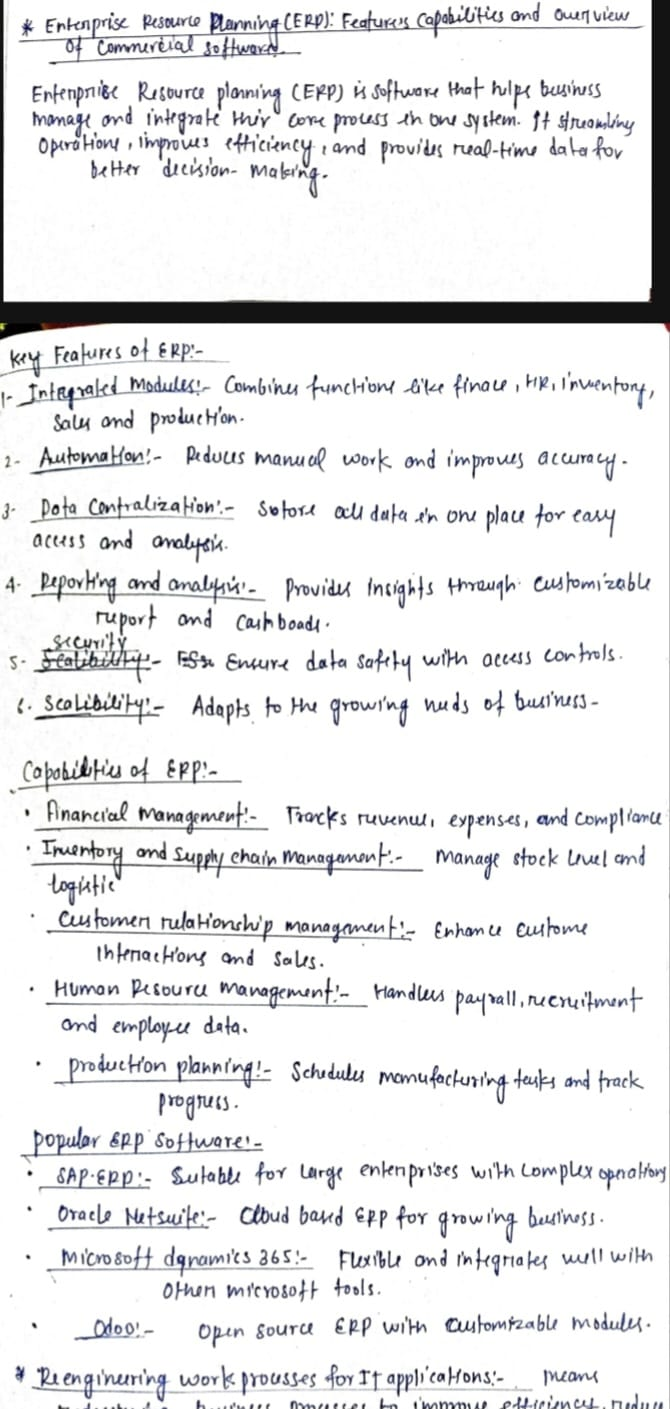 * Enterprise Resource Planning (ERP): Features Capabilities and overview
of Commercial Software
Enterprise Resource planning (ERP) is software that helps business
manage and integrate their core process in one system. It streamling
Operations, improves efficiency, and provides real-time data for
better decision-making.
Key Features of ERP:-
1- Integrated Modules:- Combines functions like finace, HR, inventory,
Sales and production.
2- Automation:- Reduces manual work and improves accuracy.
3- Data Contralization:- Sotore all data in one place for easy
access and analysis.
4. Reporting and analysis:- Provides Insights through customizable
report and Cashboads.
security
5- Scalibility:- Ensure data safety with access controls.
6. Scalibility:- Adapts to the growing needs of business-
Capabilities of ERP:-
• Financial management:- Tracks revenue, expenses, and compliance
• Inventory and Supply chain management:- Manage stock level and
logistic
• Customer relationship management:- Enhance custome
Interactions and sales.
• Human Resource management:- Handles payrall, recruitment
and employee data.
• production planning:- Schedules manufacturing tasks and track
progress.
popular ERP Software:-
• SAP-ERP:- Sutable for large enterprises with complex operations
• Oracle Netsuite:- Cloud based ERP for growing business.
• Microsoft dynamics 365:- Flexible and integriates well with
Other microsoft tools.
• Odoo:- Open source ERP with customizable modules.
* Reengineering work processes for It applications:- means
business processes to improve efficiency, reduce